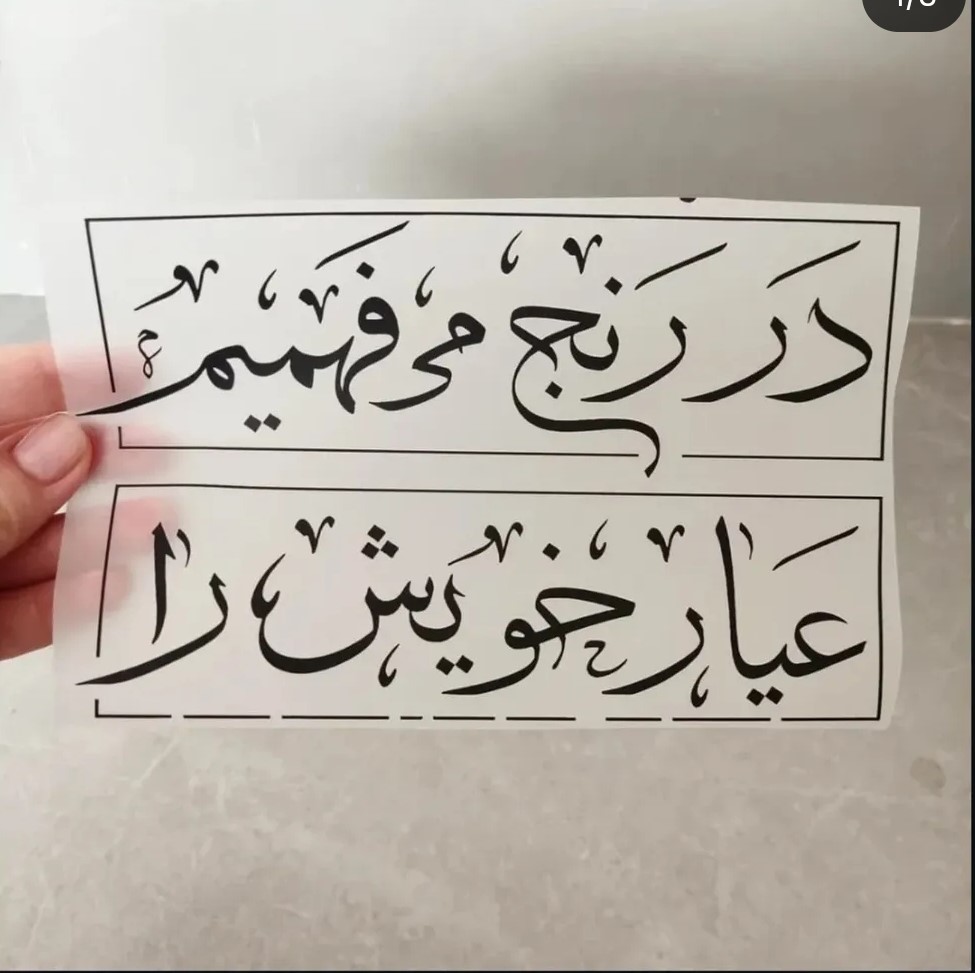 در رنج می‌فهمیم
عیار خویش را